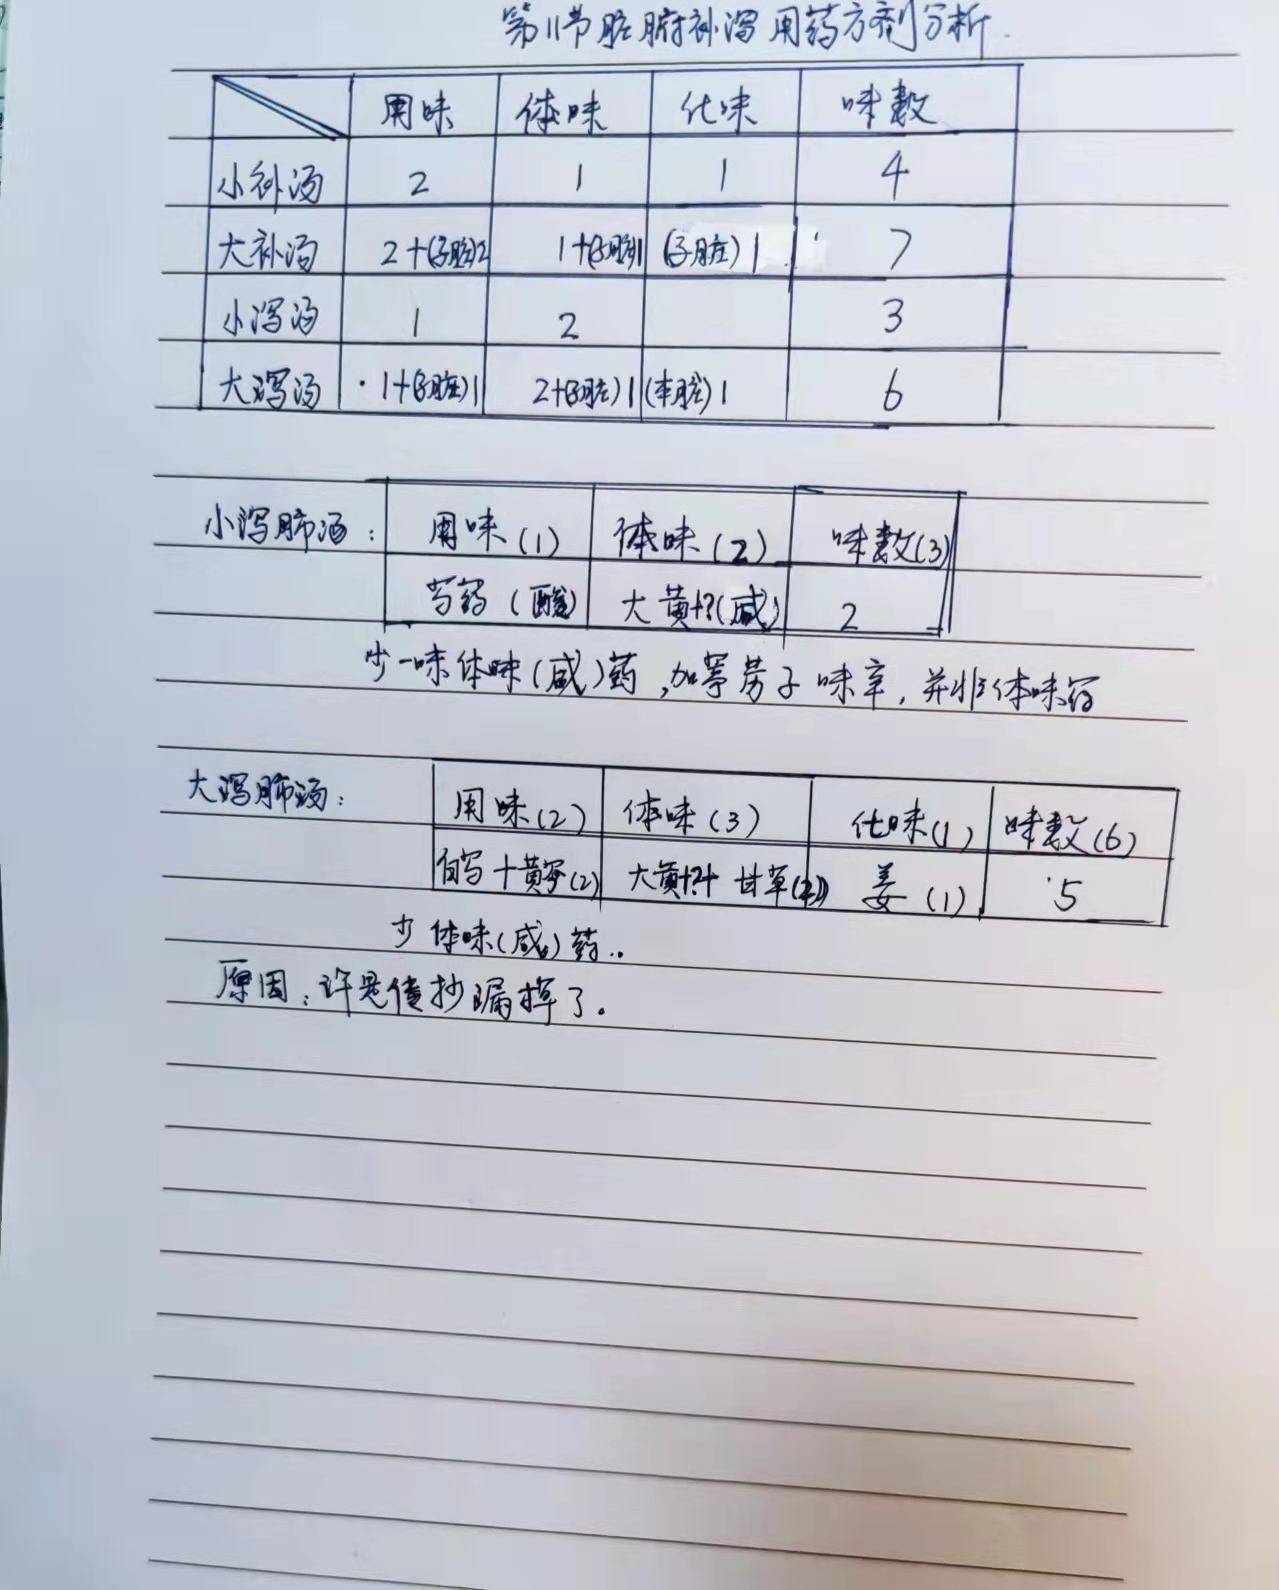 第11节脏腑补泻用药方剂分析.
用味 体味 化味 味数
小补汤 2 1 1 4
大补汤 2+(子脏)2 1+(子脏)1 (子脏)1 7
小泻汤 1 2 3
大泻汤 1+(子脏)1 2+(子脏)1 (本脏)1 6
小泻肺汤: 用味(1) 体味(2) 味数(3)
芍药(酸) 大黄+?(咸) 2
少一味体味(咸)药,加葶苈子味辛,并非体味药
大泻肺汤: 用味(2) 体味(3) 化味(1) 味数(6)
白芍+黄芩(2) 大黄+?+甘草 姜(1) 5
少体味(咸)药..
原因:许是传抄漏掉了。